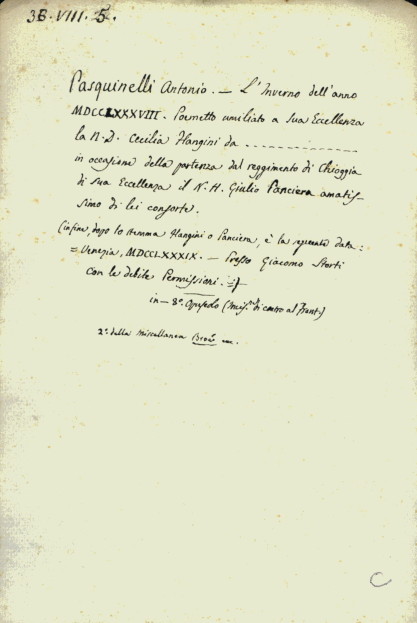 3B.VIII.5.
Pasquinelli Antonio. — L'Inverno dell'anno
MDCCLXXXVIII. Poemetto umiliato a Sua Eccellenza
la N.D. Cecilia Mangini da
in occasione della partenza dal reggimento di Chioggia
di Sua Eccellenza il N.H. Giulio Panciera amatis-
simo di lei consorte.
(infine, dopo lo stemma Mangini o Panciera, è la seguente data:
= Venezia, MDCCLXXXIX. — Presso Giacomo Storti
Con le debite Permissioni. =)
in-8° Opuscolo
2° della miscellanea
C